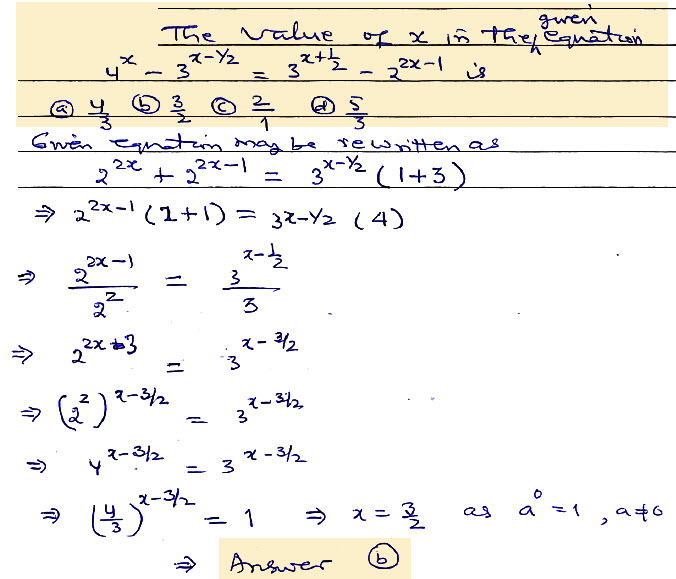 The value of x in the given equation
4^x - 3^(x-1/2) = 3^(x+1/2) - 2^(2x-1) is
(a) 4/3 (b) 3/2 (c) 2/1 (d) 5/3
Given equation may be rewritten as
2^(2x) + 2^(2x-1) = 3^(x-1/2) (1+3)
⇒ 2^(2x-1) (2+1) = 3^(x-1/2) (4)
⇒ 2^(2x-1)/2^2 = 3^(x-1/2)/3
⇒ 2^(2x-3) = 3^(x-3/2)
⇒ (2^2)^(x-3/2) = 3^(x-3/2)
⇒ 4^(x-3/2) = 3^(x-3/2)
⇒ (4/3)^(x-3/2) = 1 ⇒ x = 3/2 as a^0 = 1, a≠0
⇒ Answer (b)